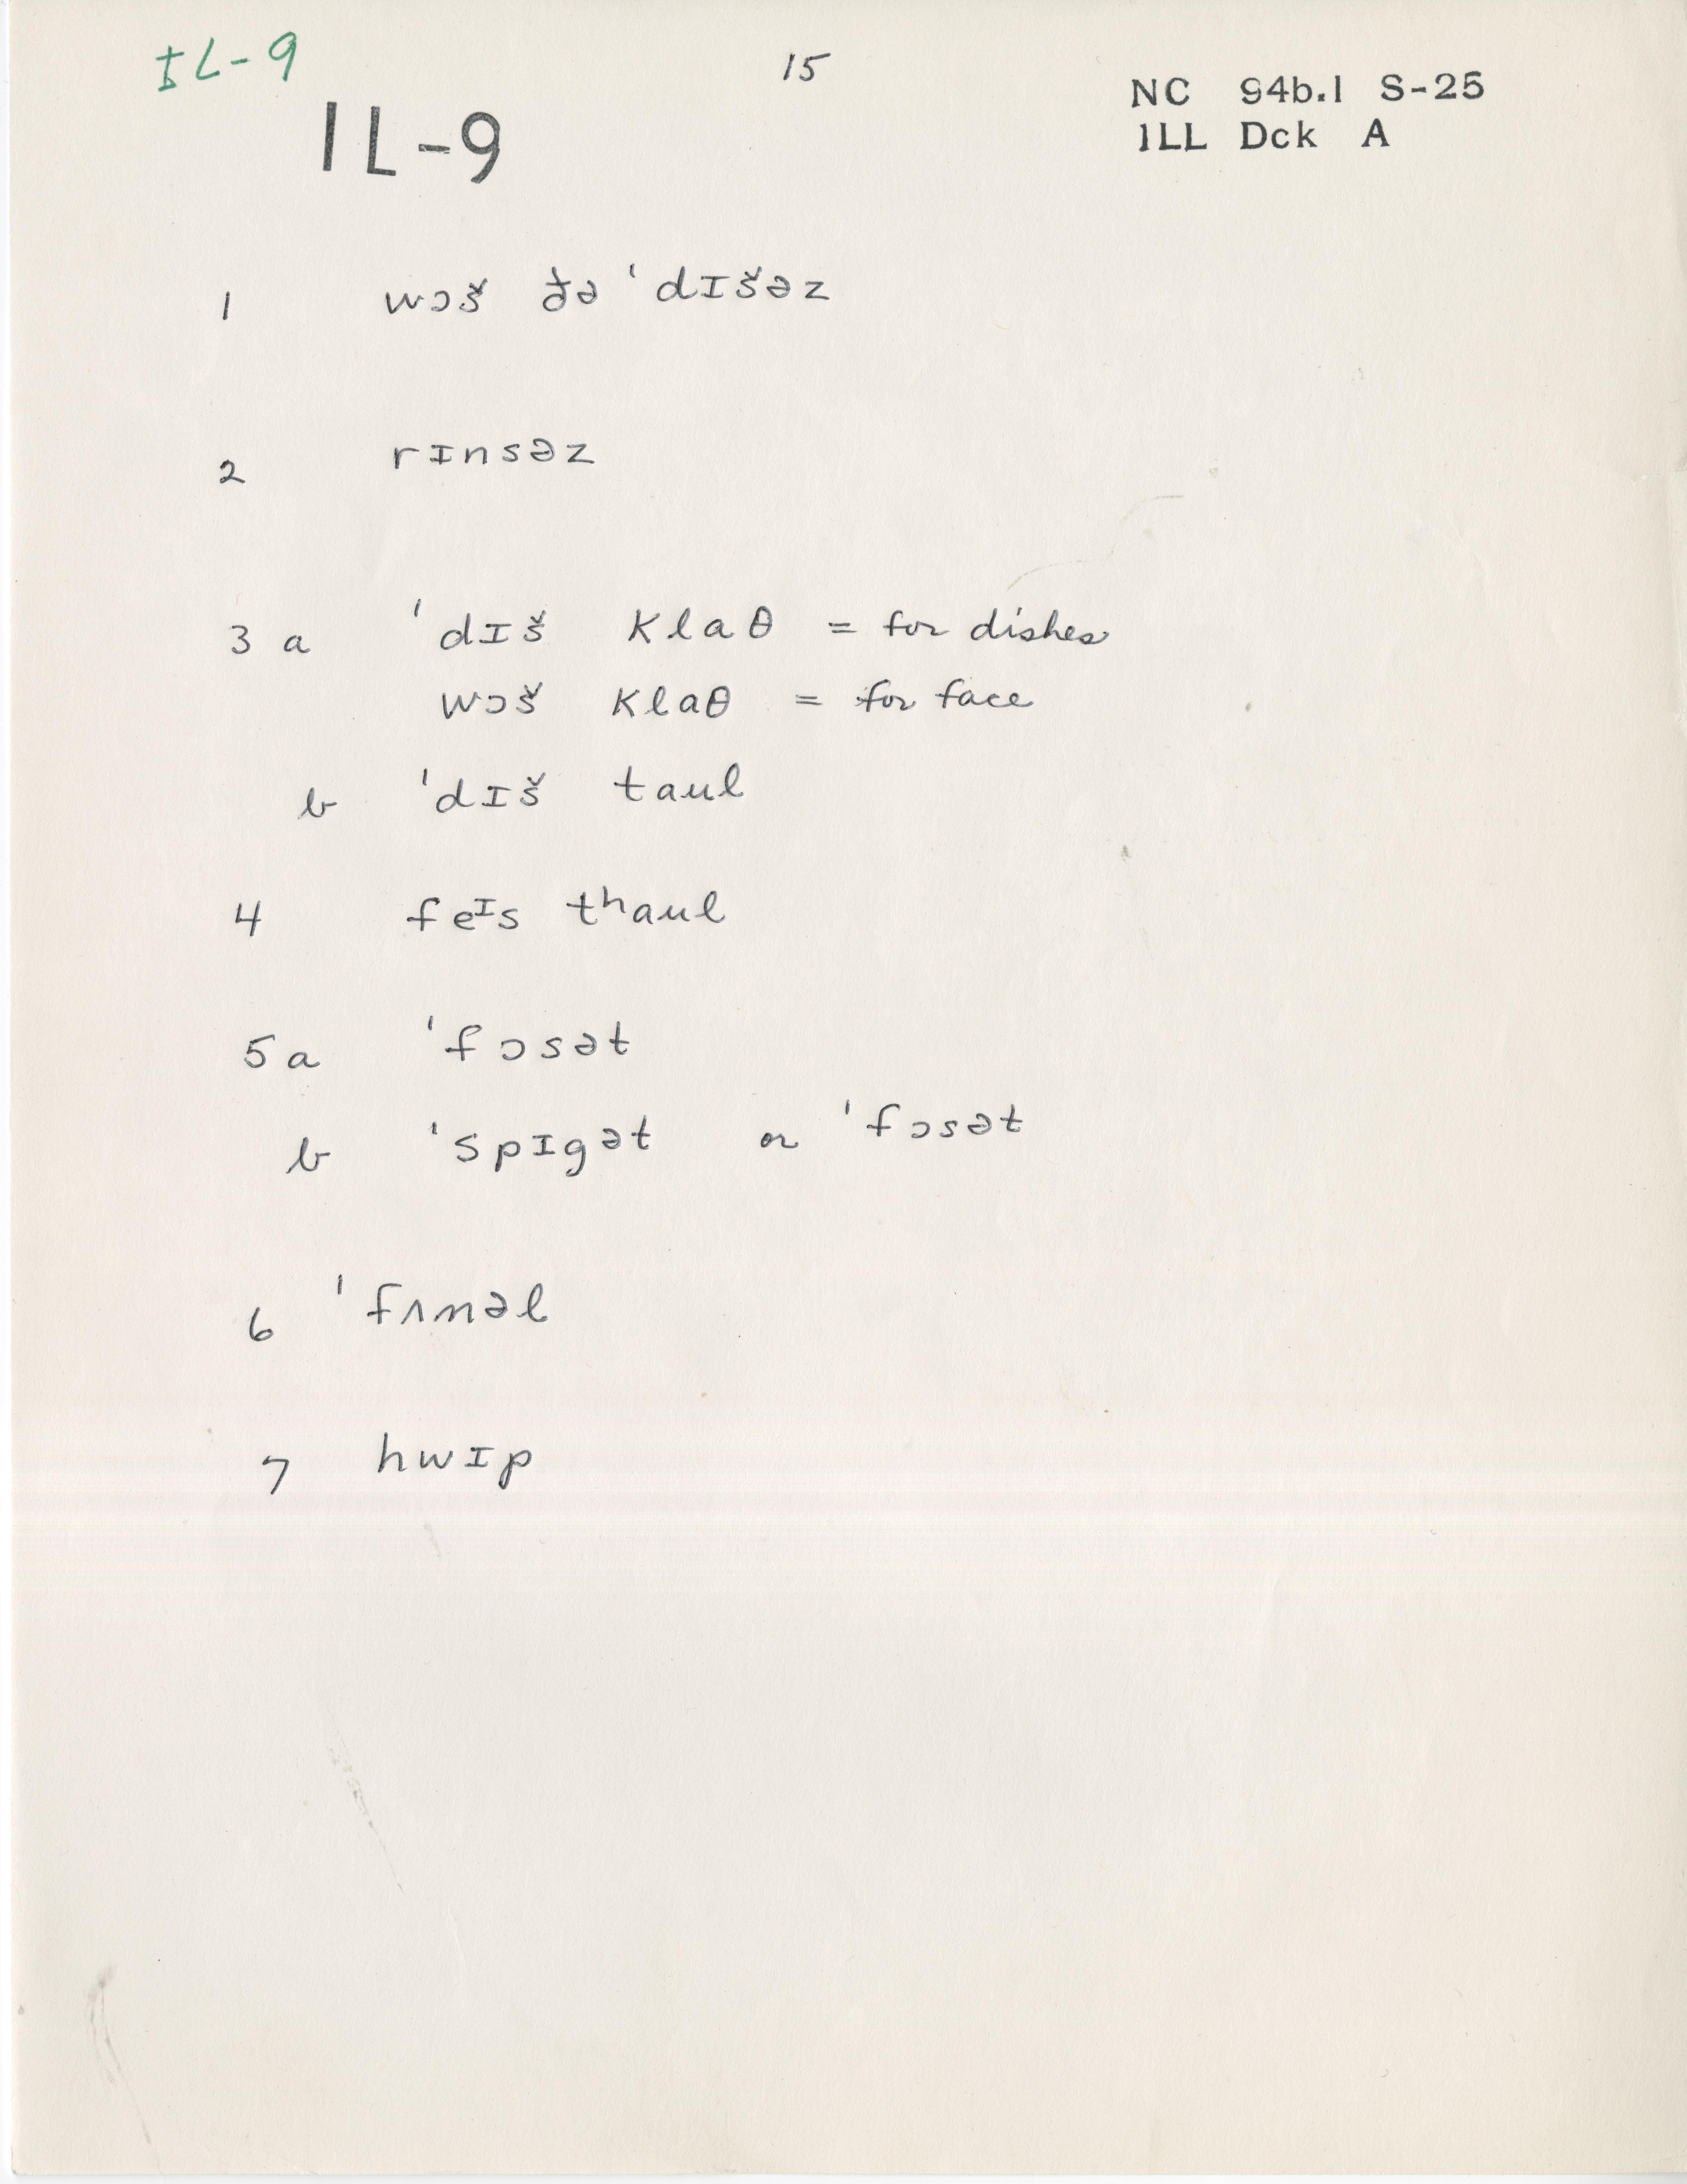 IL-9
15
NC 94b.1 S-25
ILL Dck A
IL-9
1 wɔš ðə ˈdɪšəz
2 rɪnsəz
3 a ˈdɪš klaθ = for dishes
wɔš klaθ = for face
b ˈdɪš taul
4 feᴵs tʰaul
5 a ˈfɔsət
b ˈspɪgət or ˈfɔsət
6 ˈfʌnəl
7 hwɪp